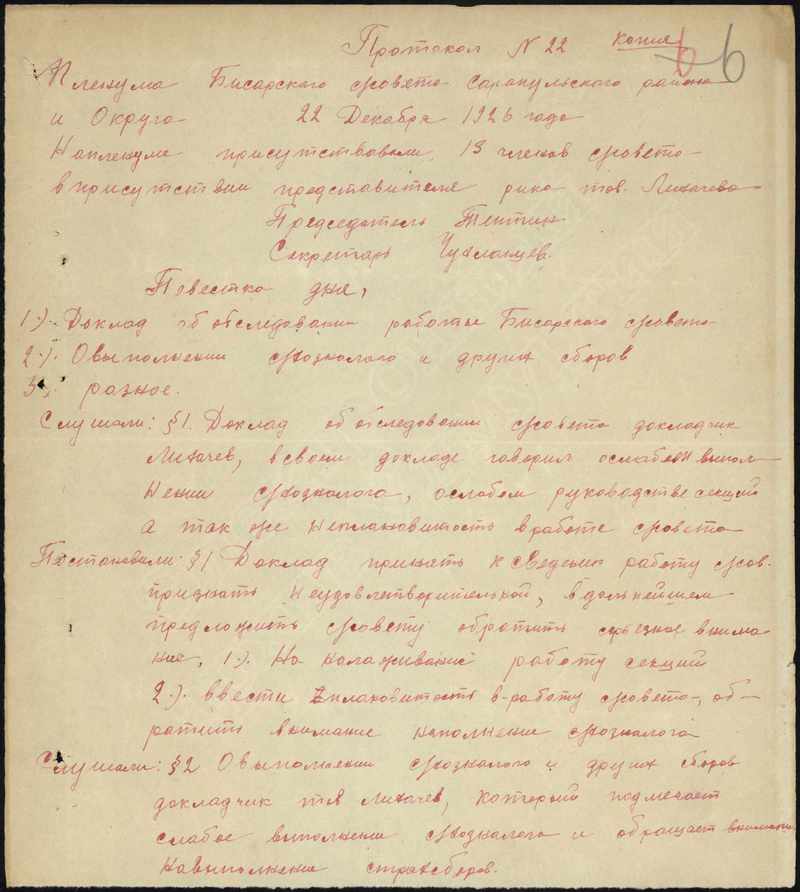 Протокол N 22 Копие 6
Пленума Бисарского с/совета Сарапульского района
и Округа 22 Декабря 1926 года
Напленуме присутствовали 13 членов с/совета
вприсутствии представителе рика тов. Лихачева
Председатель Тептин
Секретарь Чухланцев.
Повестка дня,
1). Доклад об обследовании работы Бисарского с/совета
2). Овыполнении с/хозналога и других сборов
3). разное.
Слушали: §1. Доклад об обследовании с/совета докладчик
Лихачев, всвоем докладе говорил ослабом выпол
нении с/хозналога, ослабом руководстве секций
а так же неплановитость вработе с/совета
Постановили §1 Доклад принять к сведению работу с/сов.
признать неудовлетворительной, вдальнейшем
предложить с/совету обратить сфьезное внима
ние, 1). На налаживание работу секций
2). ввести плановитость в-работу с/совета, об-
ратить внимание наполнение с/хозналога
Слушали: §2 Овыполнении с/хозналога и других сборов
докладчик тов Лихачев, который подмечает
слабое выполнение с/хозналога и обращает внимание
навыполнение страхсборов.